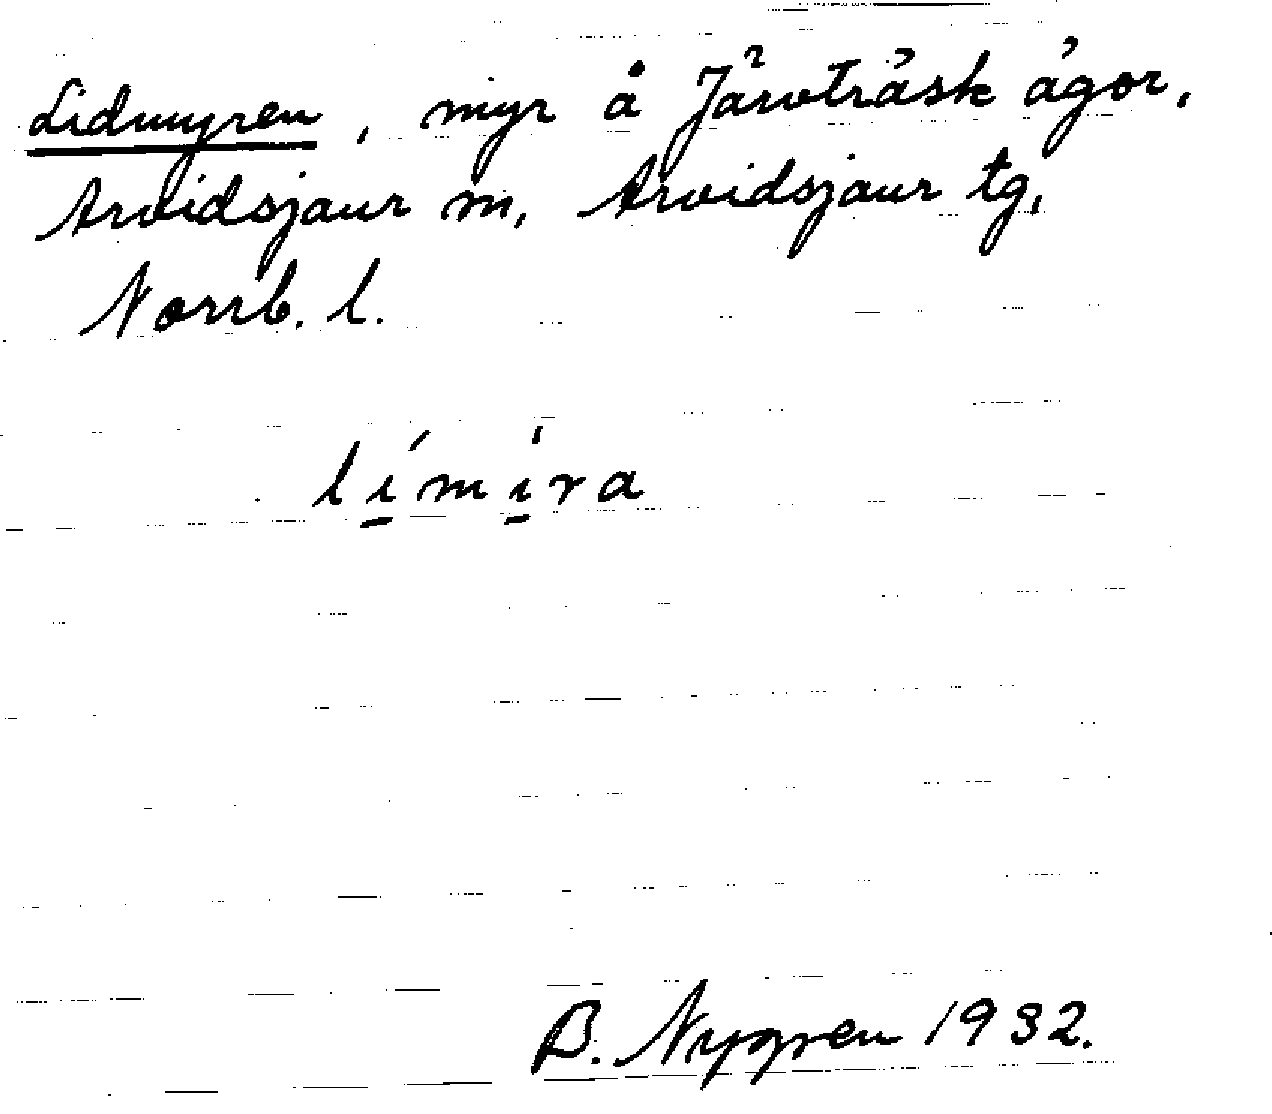 Lidmyren, myr å Järvträsk ägor,
Arvidsjaur m, Arvidsjaur tg,
Norrb. l.
li̱´mi̱̍ra
B. Nygren 1932.